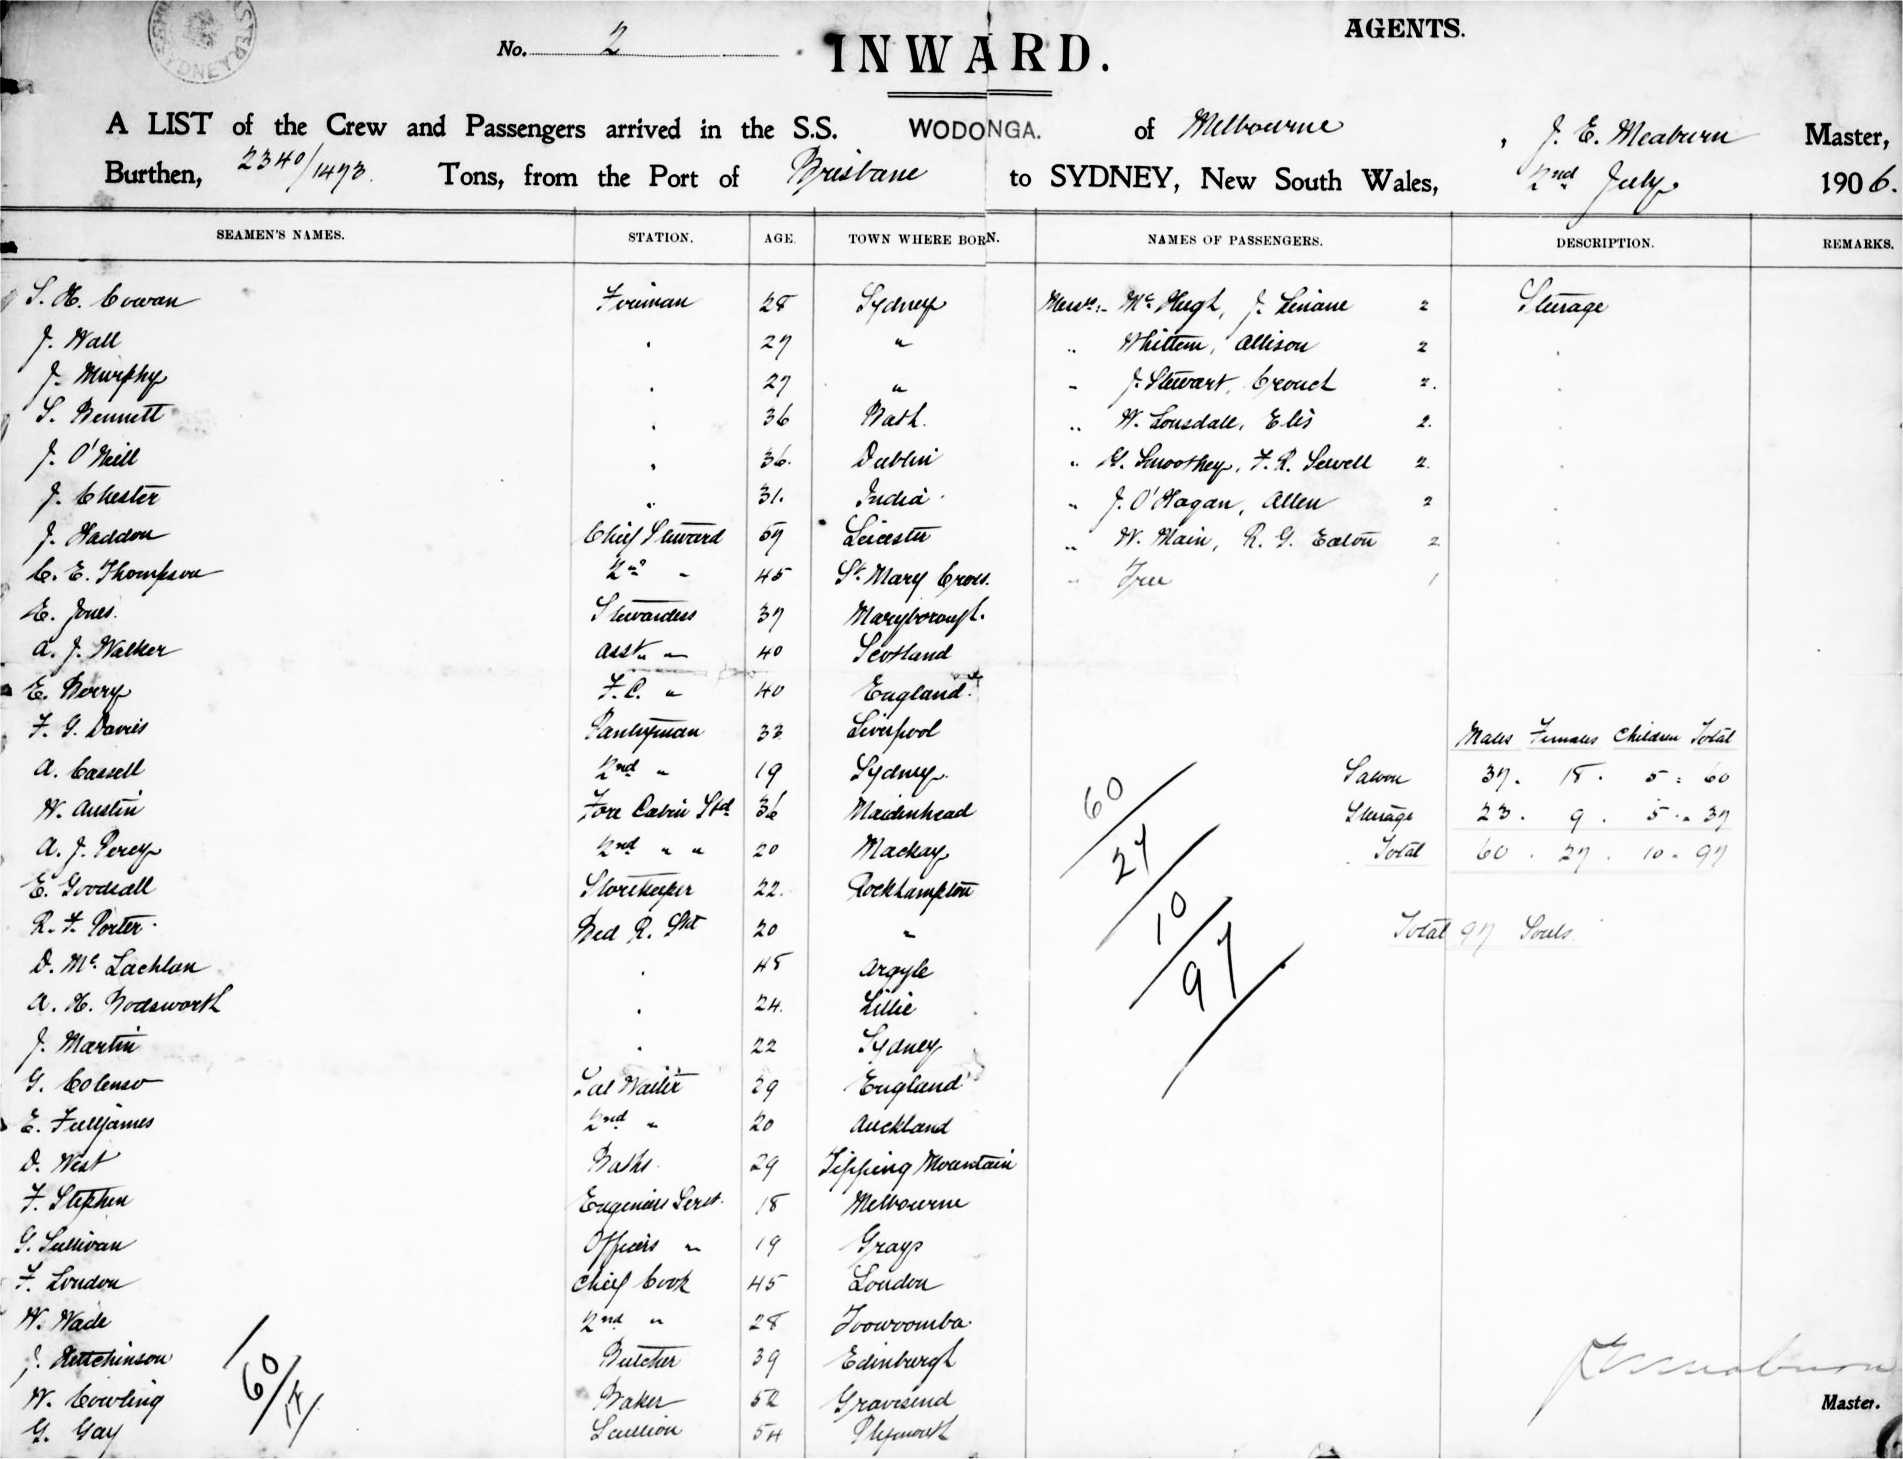 No. 2
INWARD.
AGENTS.
A LIST of the Crew and Passengers arrived in the S.S. WODONGA. of Melbourne, J. E. Meaburn Master,
Burthen, 2340/1473 Tons, from the Port of Brisbane to SYDNEY, New South Wales, 2nd July 1906.
SEAMEN'S NAMES. STATION. AGE. TOWN WHERE BORN. NAMES OF PASSENGERS. DESCRIPTION. REMARKS.
S. H. Cowan Fireman 28 Sydney Messrs:- McHugh, J. Liniane 2 Steerage
J. Wall " 27 " " Whittem, Allison 2 "
J. Murphy " 27 " " J. Stewart, Crouch 2. "
S. Bennett " 36 Bath. " W. Lonsdale, Elis 2. "
J. O'Neill " 36. Dublin " G. Smoothey, F. R. Sewell 2. "
J. Chester " 31. India. " J. O'Hagan, Allen 2 "
J. Haddon Chief Steward 57 Leicester " W. Main, R. G. Eaton 2 "
C. E. Thompson 2nd " 45 St. Mary Cross. " Free 1 "
E. Jones. Stewardess 37 Maryborough.
A. J. Walker Asst. " " 40 Scotland
E. Berry F.C. " 40 England.
F. G. Davies Pantryman 33 Liverpool
Males Females Children Total
A. Cassell 2nd " 19 Sydney. Saloon 37. 18. 5 = 60
W. Austin Fore Cabin Std 36 Maidenhead 60 Steerage 23. 9. 5. = 37
A. J. Percy 2nd " " 20 Mackay 27 Total 60. 27. 10. 97
E. Goodsall Storekeeper 22. Rockhampton
R. F. Porter. Bed R. Std 20 " 10 Total 97 Souls.
D. McLachlan " 48 Argyle 97
A. H. Bodsworth " 24. Lillie
J. Martin " 22 Sydney
G. Colenso Sal Waiter 29 England
E. Fulljames 2nd " 20 Auckland
D. West Baths. 29 Tipping Mountain
F. Stephen Engineers Servt. 18 Melbourne
G. Sullivan Officers " 19 Grays
F. London Chief Cook 45 London
W. Wade 2nd " 28 Toowoomba.
J. Hutchinson 60 Butcher 39 Edinburgh J E Meaburn
W. Cowling Baker 52 Gravesend Master.
G. Gay Scullion 54 Plymouth